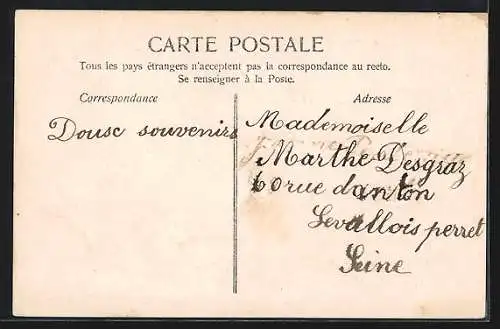 CARTE POSTALE
Tous les pays étrangers n'acceptent pas la correspondance au recto.
Se renseigner à la Poste.
Correspondance
Adresse
Dousc souvenirs
Mademoiselle
Marthe Desgraz
60 rue danton
Levallois perret
Seine